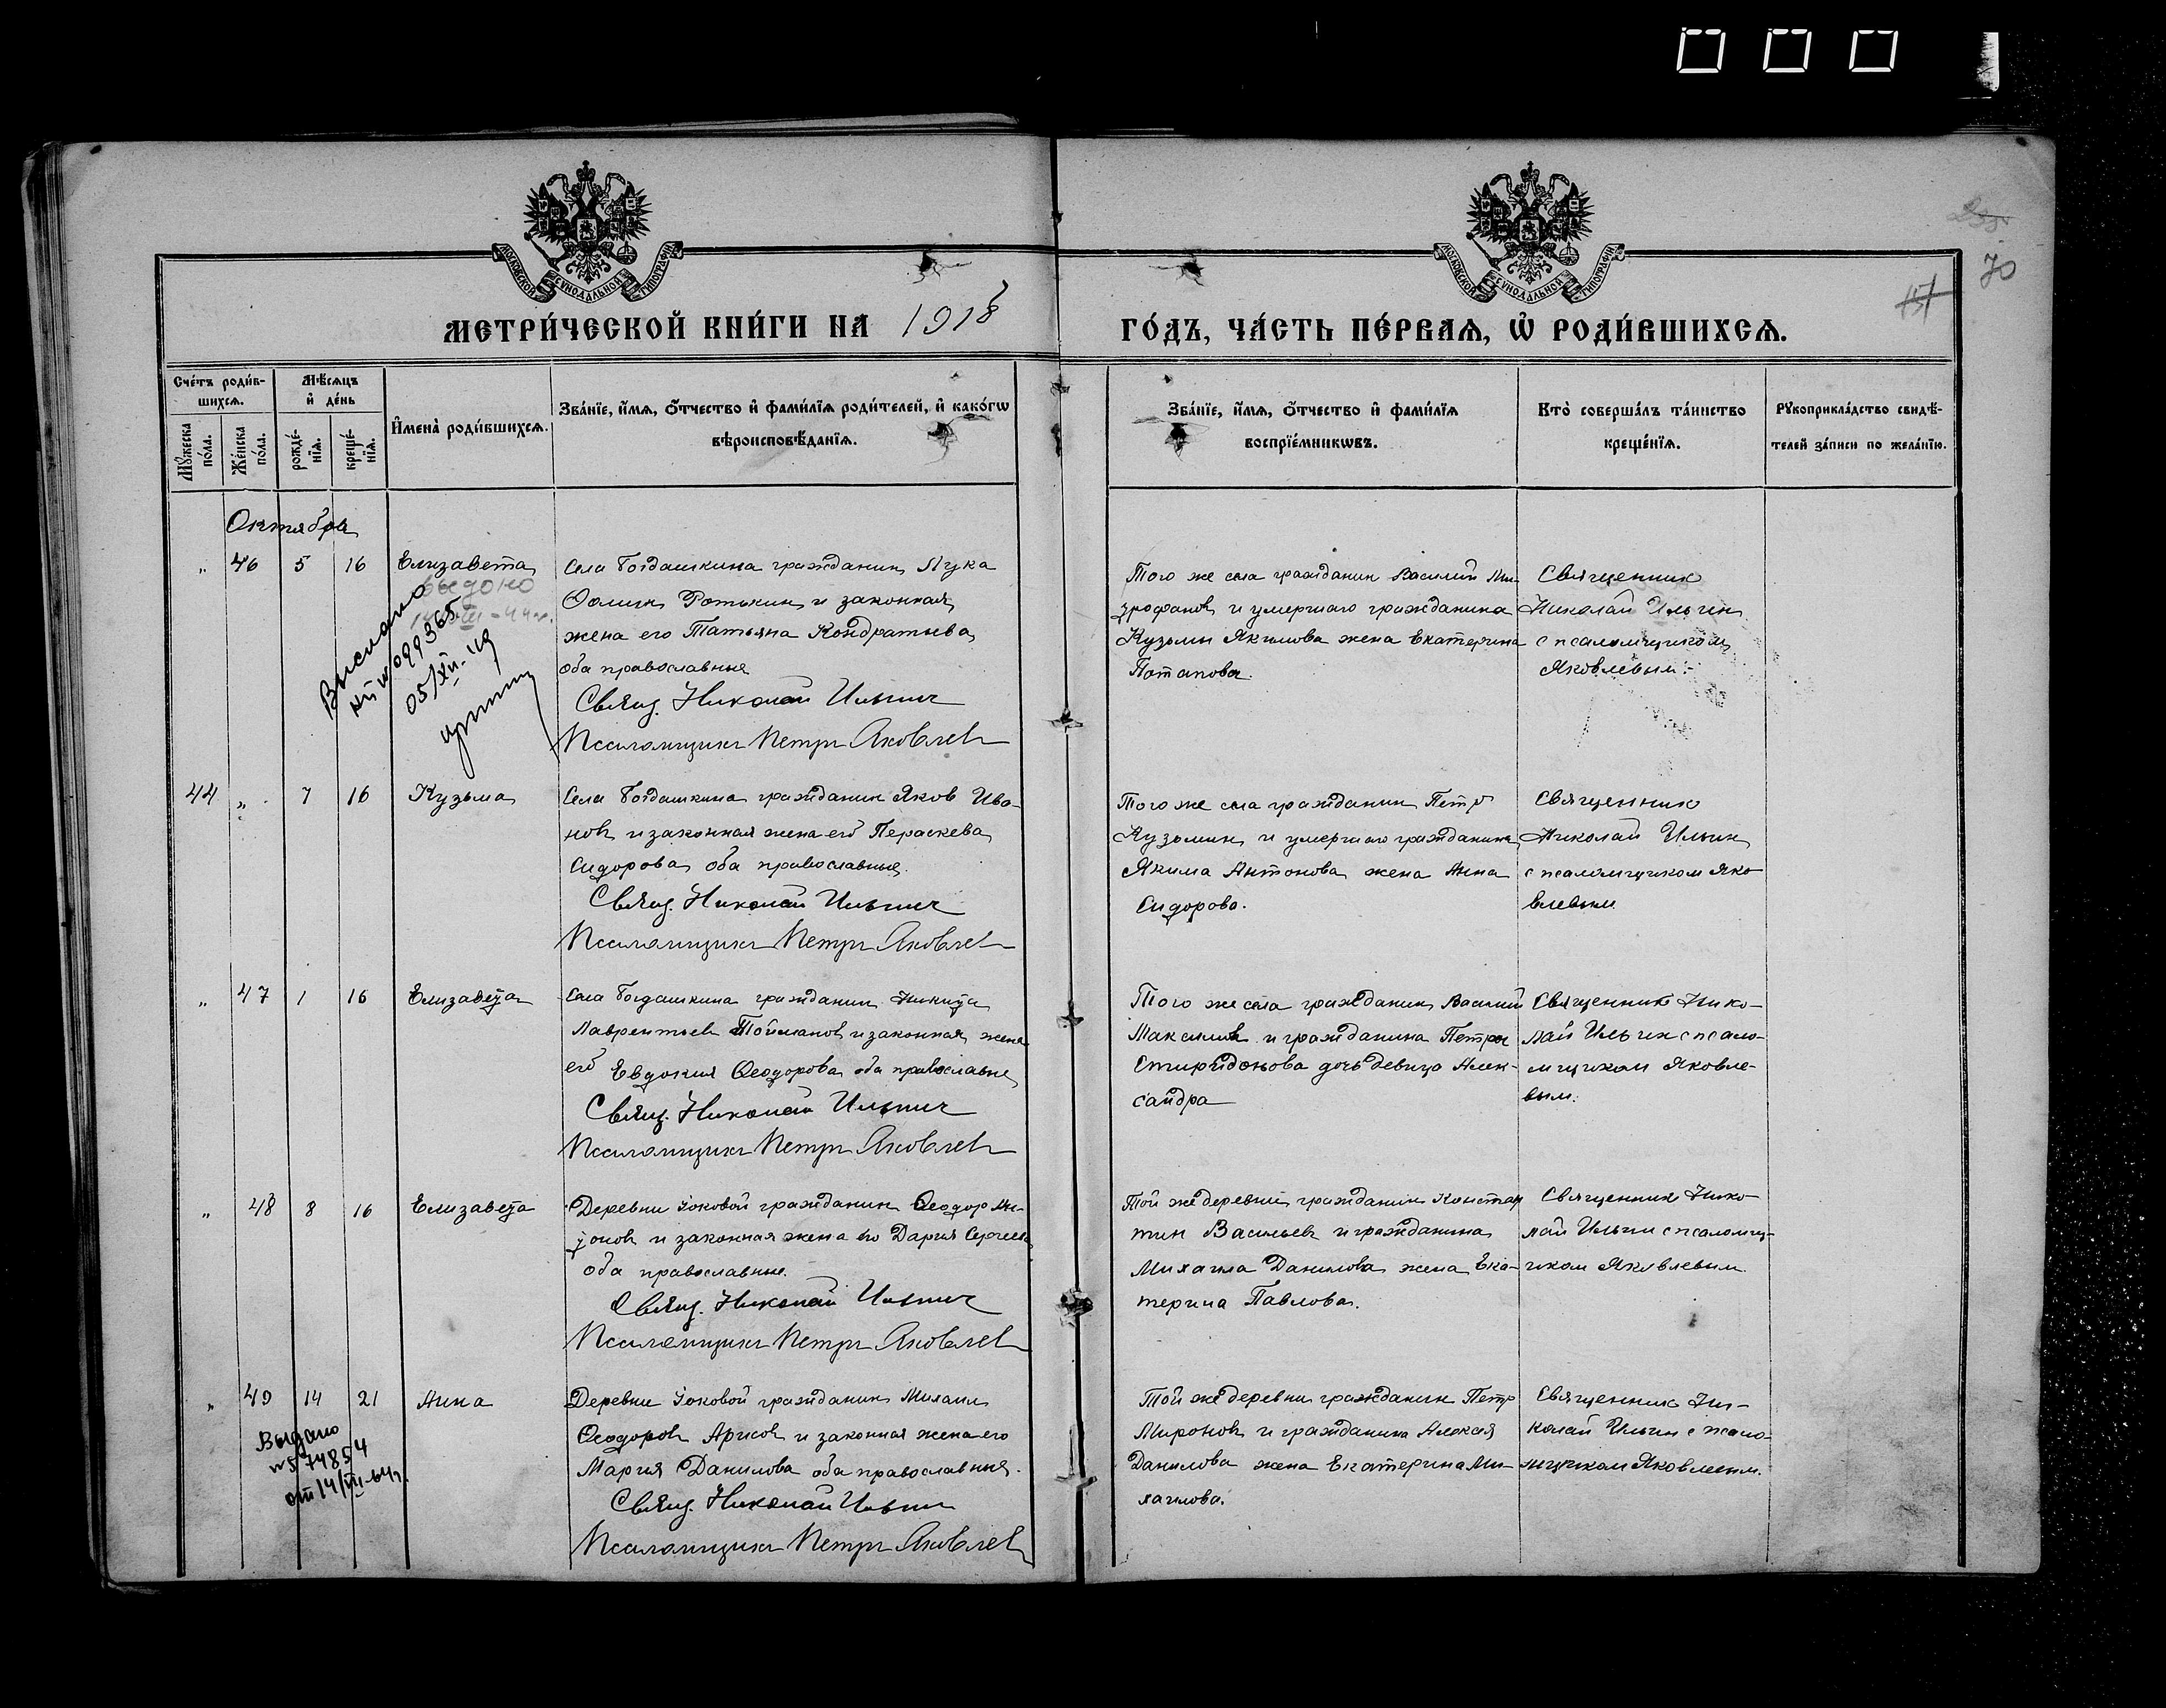 МОСКОВСКОЙ СѴНОДАЛЬНОЙ ТИПОГРАФІИ
МОСКОВСКОЙ СѴНОДАЛЬНОЙ ТИПОГРАФІИ
70
МЕТРИ́ЧЕСКОЙ КНИ́ГИ НА 1918
ГО́ДЪ, ЧА́СТЬ ПЕ́РВАѦ, Ѡ҆ РОДИ́ВШИХСѦ.
Сче́тъ роди́в-
шихсѧ.
Мѣ́сѧцъ
и҆ де́нь
Мꙋ́жеска по́ла.
Же́нска по́ла.
рожде́-нїѧ.
креще́-нїѧ.
И҆мена̀ роди́вшихсѧ.
Зва́нїе, и҆́мѧ, ѻ҆́тчество и҆ фами́лїѧ роди́телей, и҆ како́гѡ
вѣроисповѣ́данїѧ.
Зва́нїе, и҆́мѧ, ѻ҆́тчество и҆ фами́лїѧ
воспрїе́мникѡвъ.
Кто̀ соверша́лъ та́инство
креще́нїѧ.
Рꙋкоприкла́дство свидѣ́-
телей за́писи по жела́нїю.
Октября
„ 46 5 16 Елизавета
выдано
Выслано
099365
05/XII-49
Села Богдашкина гражданин Лука
Фомин Ротькин и законная
жена его Татьяна Кондратьева
оба православные
Свящ. Николай Ильин
Псаломщик Петр Яковлев
Того же села гражданин Василий Ми-
трофанов и умершаго гражданина
Кузьмы Якимова жена Екатерина
Потапова.
Священник
Николай Ильин
с псаломщиком
Яковлевым.
44 „ 7 16 Кузьма
Села Богдашкина гражданин Яков Ива-
нов и законная жена его Параскева
Сидорова оба православные.
Свящ. Николай Ильин
Псаломщик Петр Яковлев
Того же села гражданин Петр
Кузьмин и умершаго гражданина
Якима Антонова жена Анна
Сидорова.
Священник
Николай Ильин
с псаломщиком Яко-
влевым
„ 47 1 16 Елизавета
Села Богдашкина гражданин Никита
Лаврентьев Тойманов и законная жена
его Евдокия Феодорова оба православные
Свящ. Николай Ильин
Псаломщик Петр Яковлев
Того же села гражданин Василий
Максимов и гражданина Петра
Спиридонова дочь девица Алек-
сандра
Священник Нико-
лай Ильин с псало-
мщиком Яковле-
вым.
„ 48 8 16 Елизавета
Деревни гражданин Феодор
и законная жена его Дария Сергеева
оба православные.
Свящ. Николай Ильин
Псаломщик Петр Яковлев
Той же деревни гражданин Констан
тин Васильев и гражданина
Михаила Данилова жена Ека-
терина Павлова.
Священник Нико-
лай Ильин с псаломщ-
иком Яковлевым.
„ 49 14 21 Анна
Выдано
№ 574854
от 14/VII-64г.
Деревни гражданин Михаил
Феодоров и законная жена его
Мария Данилова оба православные.
Свящ. Николай Ильин
Псаломщик Петр Яковлев
Той же деревни гражданин Петр
Миронов и гражданина Алексея
Данилова жена Екатерина Ми-
хаилова.
Священник Ни-
колай Ильин с псало-
мщиком Яковлевым.